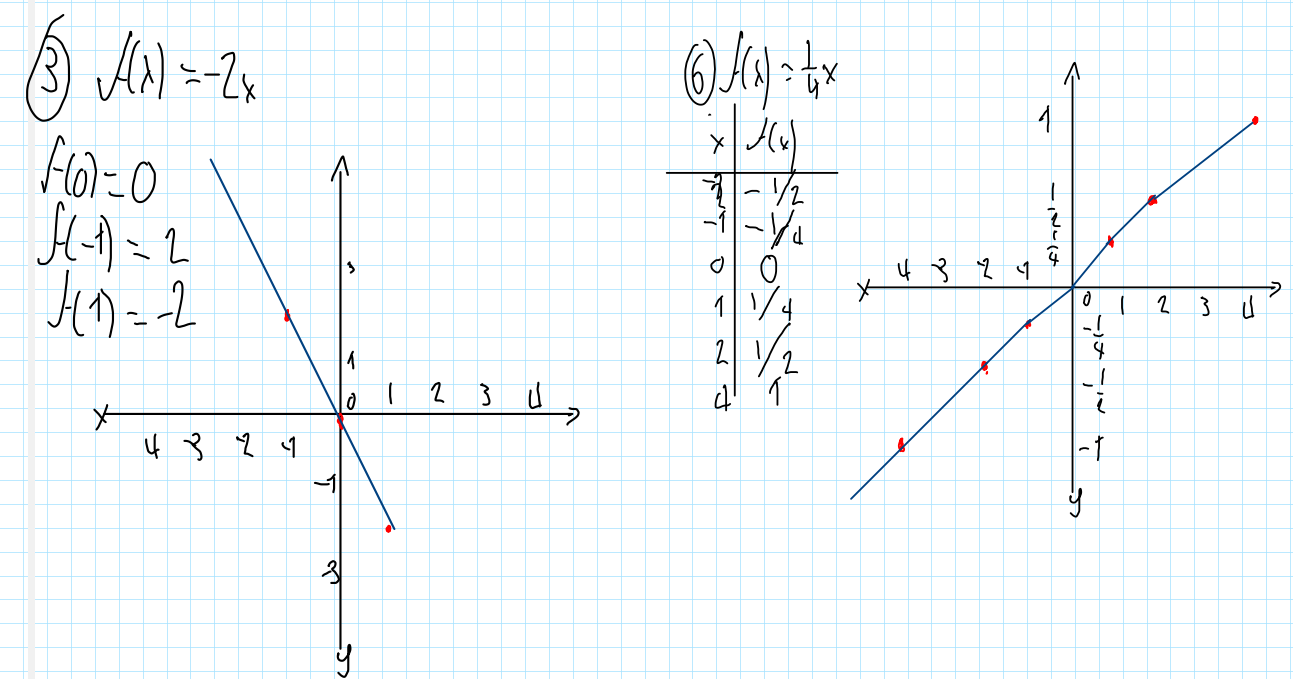 ③ f(x) = -2x
f(0) = 0
f(-1) = 2
f(1) = -2
3
1
0 1 2 3 4
x
4 -3 -2 -1
-1
-3
y
⑥ f(x) = 1/4 x
x f(x)
-2 -1/2
-1 -1/4
0 0
1 1/4
2 1/2
4 1
1
1/2
1/4
4 -3 -2 -1
x
0 1 2 3 4
-1/4
-1/2
-1
y